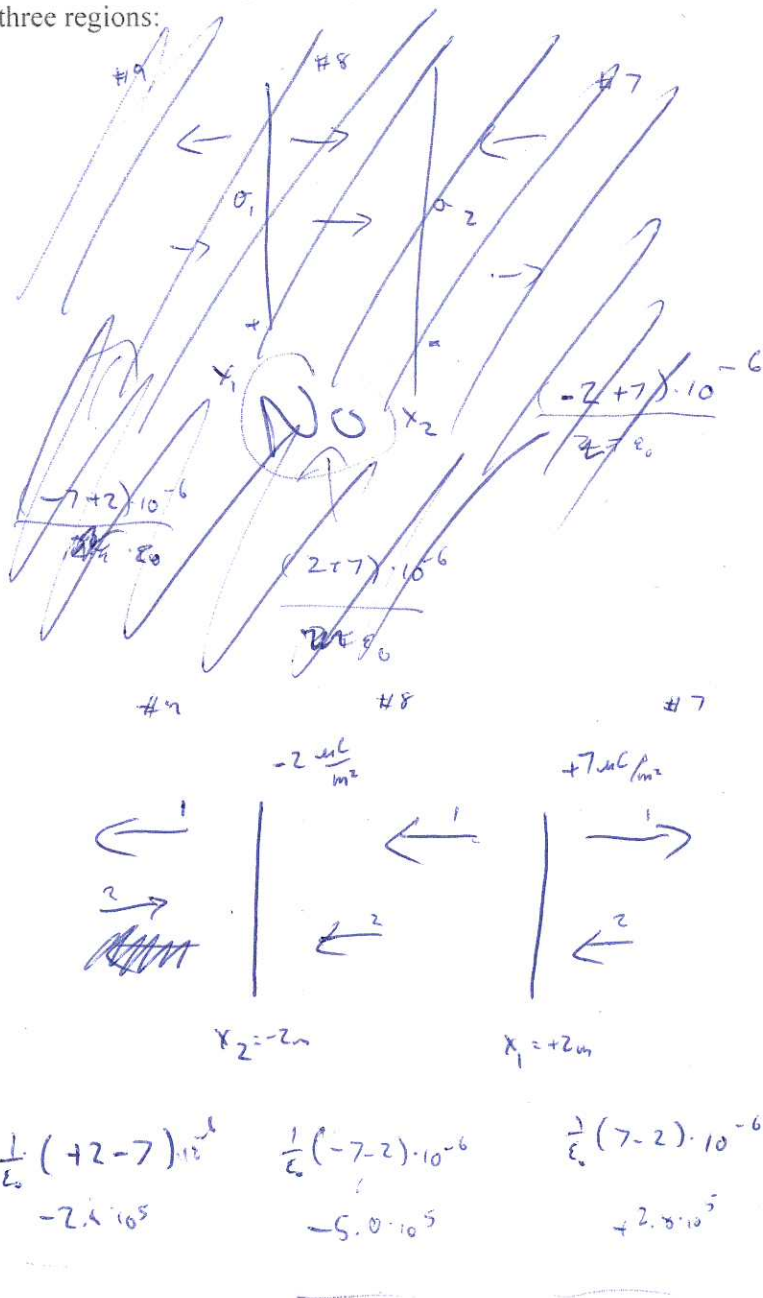 three regions:
#9 #8 #7
σ1 σ2
+ -
x1 No x2
(-2+7)·10^-6
ε0
(-7+2)·10^-6
ε0
(2+7)·10^-6
ε0
#9 #8 #7
-2 μC/m² +7 μC/m²
1 1 1
2 2 2
x2=-2m x1=+2m
1/ε0 (+2-7)·10^-6 1/ε0 (-7-2)·10^-6 1/ε0 (7-2)·10^-6
-2.8·10^5 -5.0·10^5 +2.8·10^5